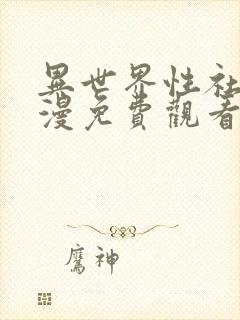 異世界性社
漫免費觀看
鷹神